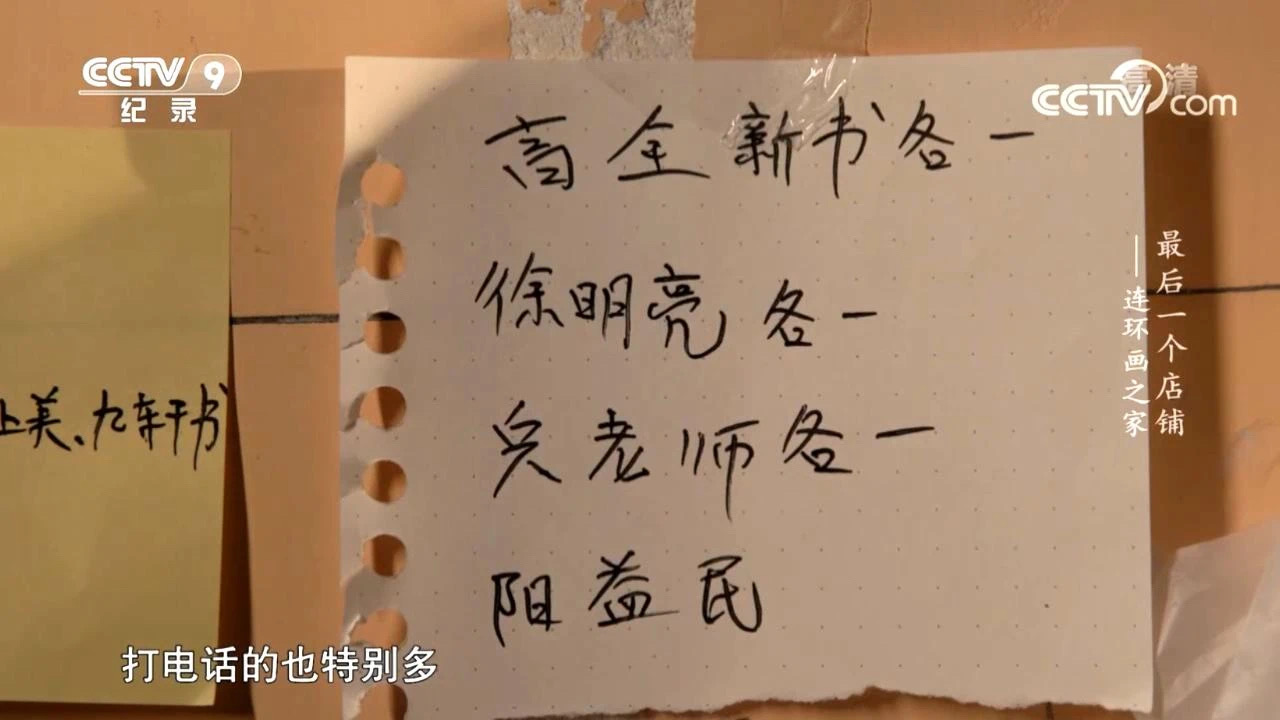 CCTV 9
纪录
高清
CCTV.com
高全 新书各一
徐明亮 各一
吴老师各一
阳益民
上美、九轩干书
最后一个店铺
——连环画之家
打电话的也特别多